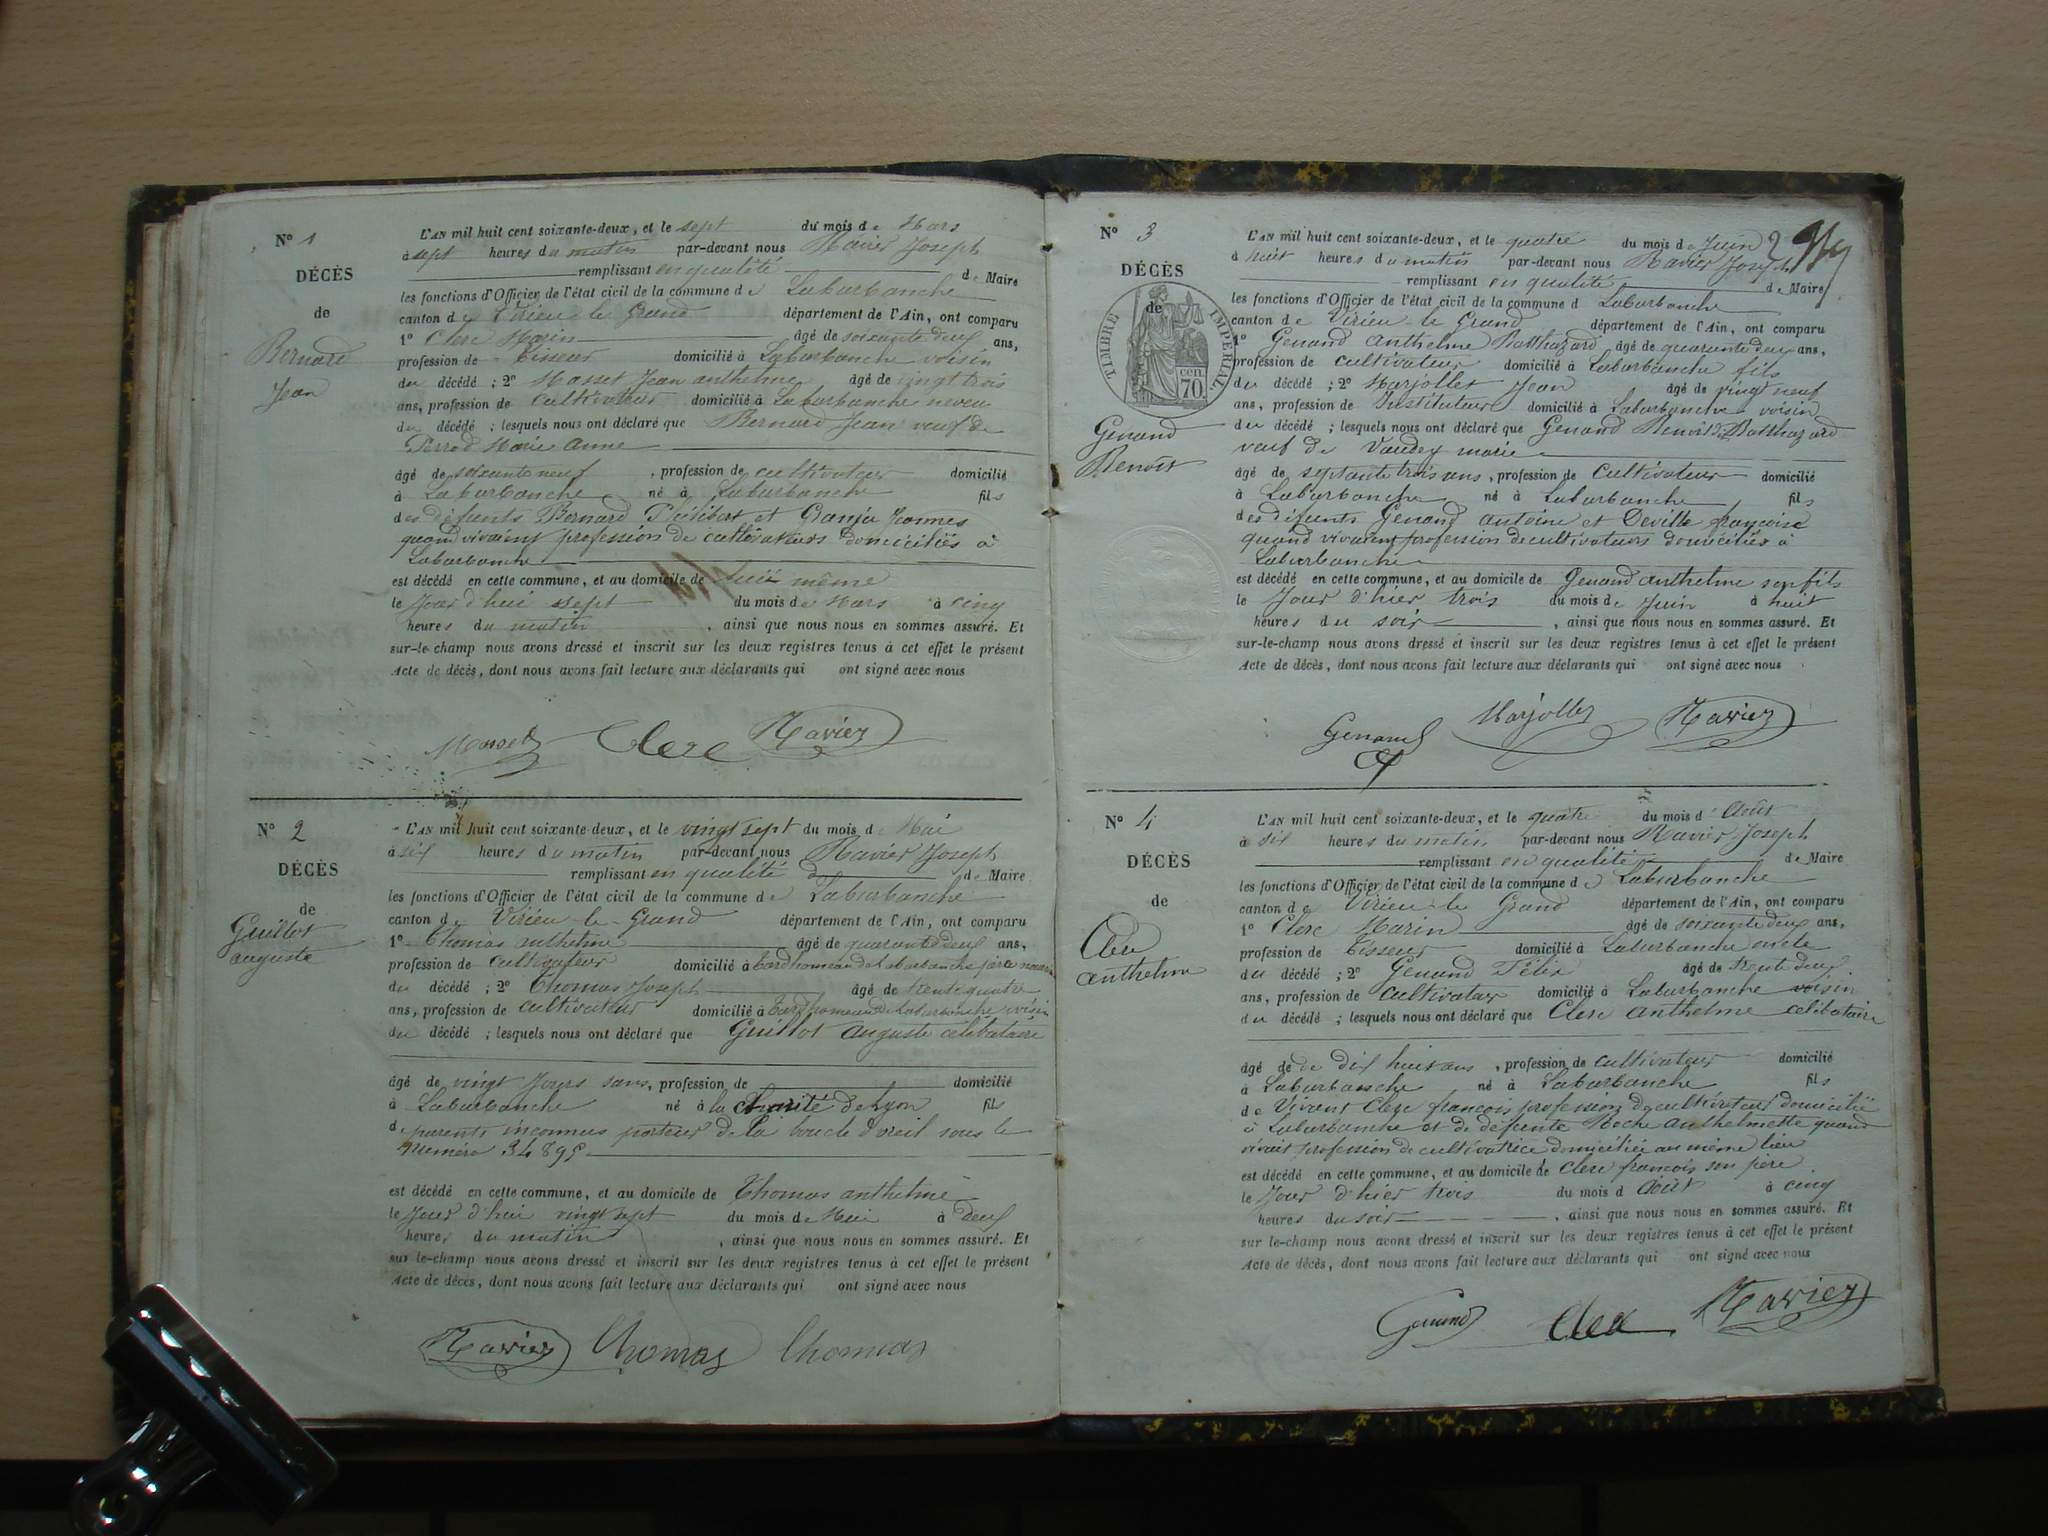 N° 1
DÉCÈS
de
Bernard
Jean
L'AN mil huit cent soixante-deux, et le sept du mois de Mars
à sept heures du matin par-devant nous Ravier Joseph
remplissant en qualité de Maire
les fonctions d'Officier de l'état civil de la commune de Laburbanche
canton de Virieu le Grand département de l'Ain, ont comparu
1° Clerc Marin âgé de soixante deux ans,
profession de Tisseur domicilié à Laburbanche voisin
du décédé ; 2° Masset Jean anthelme âgé de vingt trois
ans, profession de cultivateur domicilié à Laburbanche neveu
du décédé ; lesquels nous ont déclaré que Bernard Jean veuf de
Perrod Marie Anne
âgé de soixante neuf , profession de cultivateur domicilié
à Laburbanche né à Laburbanche fils
des défunts Bernard et
quand vivaient profession de cultivateurs domiciliés à
Laburbanche
est décédé en cette commune, et au domicile de lui même
le Jour d'hui sept du mois de Mars à cinq
heures du matin , ainsi que nous nous en sommes assuré. Et
sur-le-champ nous avons dressé et inscrit sur les deux registres tenus à cet effet le présent
Acte de décès, dont nous avons fait lecture aux déclarants qui ont signé avec nous
Masset Clerc Ravier
N° 2
DÉCÈS
de
Guillot
auguste
L'AN mil huit cent soixante-deux, et le vingt sept du mois de Mai
à six heures du matin par-devant nous Ravier Joseph
remplissant en qualité de Maire
les fonctions d'Officier de l'état civil de la commune de Laburbanche
canton de Virieu-le-Grand département de l'Ain, ont comparu
1° Thomas anthelme âgé de quarante deux ans,
profession de cultivateur domicilié à de Laburbanche père
du décédé ; 2° Thomas Joseph âgé de trente quatre
ans, profession de cultivateur domicilié à de Laburbanche voisin
du décédé ; lesquels nous ont déclaré que Guillot auguste célibataire
âgé de vingt Jours sans, profession de domicilié
à Laburbanche né à la charité de Lyon fils
de parents inconnus porteur de la boucle d'oreil sous le
Numéro 34895
est décédé en cette commune, et au domicile de Thomas anthelme
le Jour d'hui vingt sept du mois de Mai à deux
heures du matin , ainsi que nous nous en sommes assuré. Et
sur-le-champ nous avons dressé et inscrit sur les deux registres tenus à cet effet le présent
Acte de décès, dont nous avons fait lecture aux déclarants qui ont signé avec nous
Ravier Thomas Thomas
N° 3
DÉCÈS
de
TIMBRE IMPÉRIAL
70 cen.
Genand
Benoît
L'AN mil huit cent soixante-deux, et le quatre du mois de Juin 2
à huit heures du matin par-devant nous Ravier Joseph
remplissant en qualité de Maire
les fonctions d'Officier de l'état civil de la commune d Laburbanche
canton de Virieu-le Grand département de l'Ain, ont comparu
1° Genand Anthelme Balthazard âgé de quarante deux ans,
profession de cultivateur domicilié à Laburbanche fils
du décédé ; 2° Marjollet Jean âgé de vingt neuf
ans, profession de Instituteur domicilié à Laburbanche voisin
du décédé ; lesquels nous ont déclaré que Genand Benoît Balthazard
veuf de Vaudey marie
âgé de septante trois ans, profession de cultivateur domicilié
à Laburbanche né à Laburbanche fils
des défunts Genand antoine et Deville françoise
quand vivaient profession de cultivateurs domiciliés à
Laburbanche
est décédé en cette commune, et au domicile de Genand anthelme son fils
le Jour d'hier trois du mois de Juin à huit
heures du soir , ainsi que nous nous en sommes assuré. Et
sur-le-champ nous avons dressé et inscrit sur les deux registres tenus à cet effet le présent
Acte de décès, dont nous avons fait lecture aux déclarants qui ont signé avec nous
Genand Marjollet Ravier
N° 4
DÉCÈS
de
Clerc
anthelme
L'AN mil huit cent soixante-deux, et le quatre du mois d'Août
à six heures du matin par-devant nous Ravier Joseph
remplissant en qualité de Maire
les fonctions d'Officier de l'état civil de la commune de Laburbanche
canton de Virieu-le Grand département de l'Ain, ont comparu
1° Clerc Marin âgé de soixante deux ans,
profession de Tisseur domicilié à Laburbanche oncle
du décédé ; 2° Genand Félix âgé de trente deux
ans, profession de cultivateur domicilié à Laburbanche voisin
du décédé ; lesquels nous ont déclaré que Clerc anthelme célibataire
âgé de de dix huit ans , profession de cultivateur domicilié
à Laburbanche né à Laburbanche fils
de Vivant Clerc françois profession de cultivateur domicilié
à Laburbanche et de défunte Roche anthelmette quand
vivait profession de cultivatrice domiciliée au même lieu
est décédé en cette commune, et au domicile de Clerc françois son père
le Jour d'hier trois du mois d Août à cinq
heures du soir , ainsi que nous nous en sommes assuré. Et
sur-le-champ nous avons dressé et inscrit sur les deux registres tenus à cet effet le présent
Acte de décès, dont nous avons fait lecture aux déclarants qui ont signé avec nous
Genand Clerc Ravier